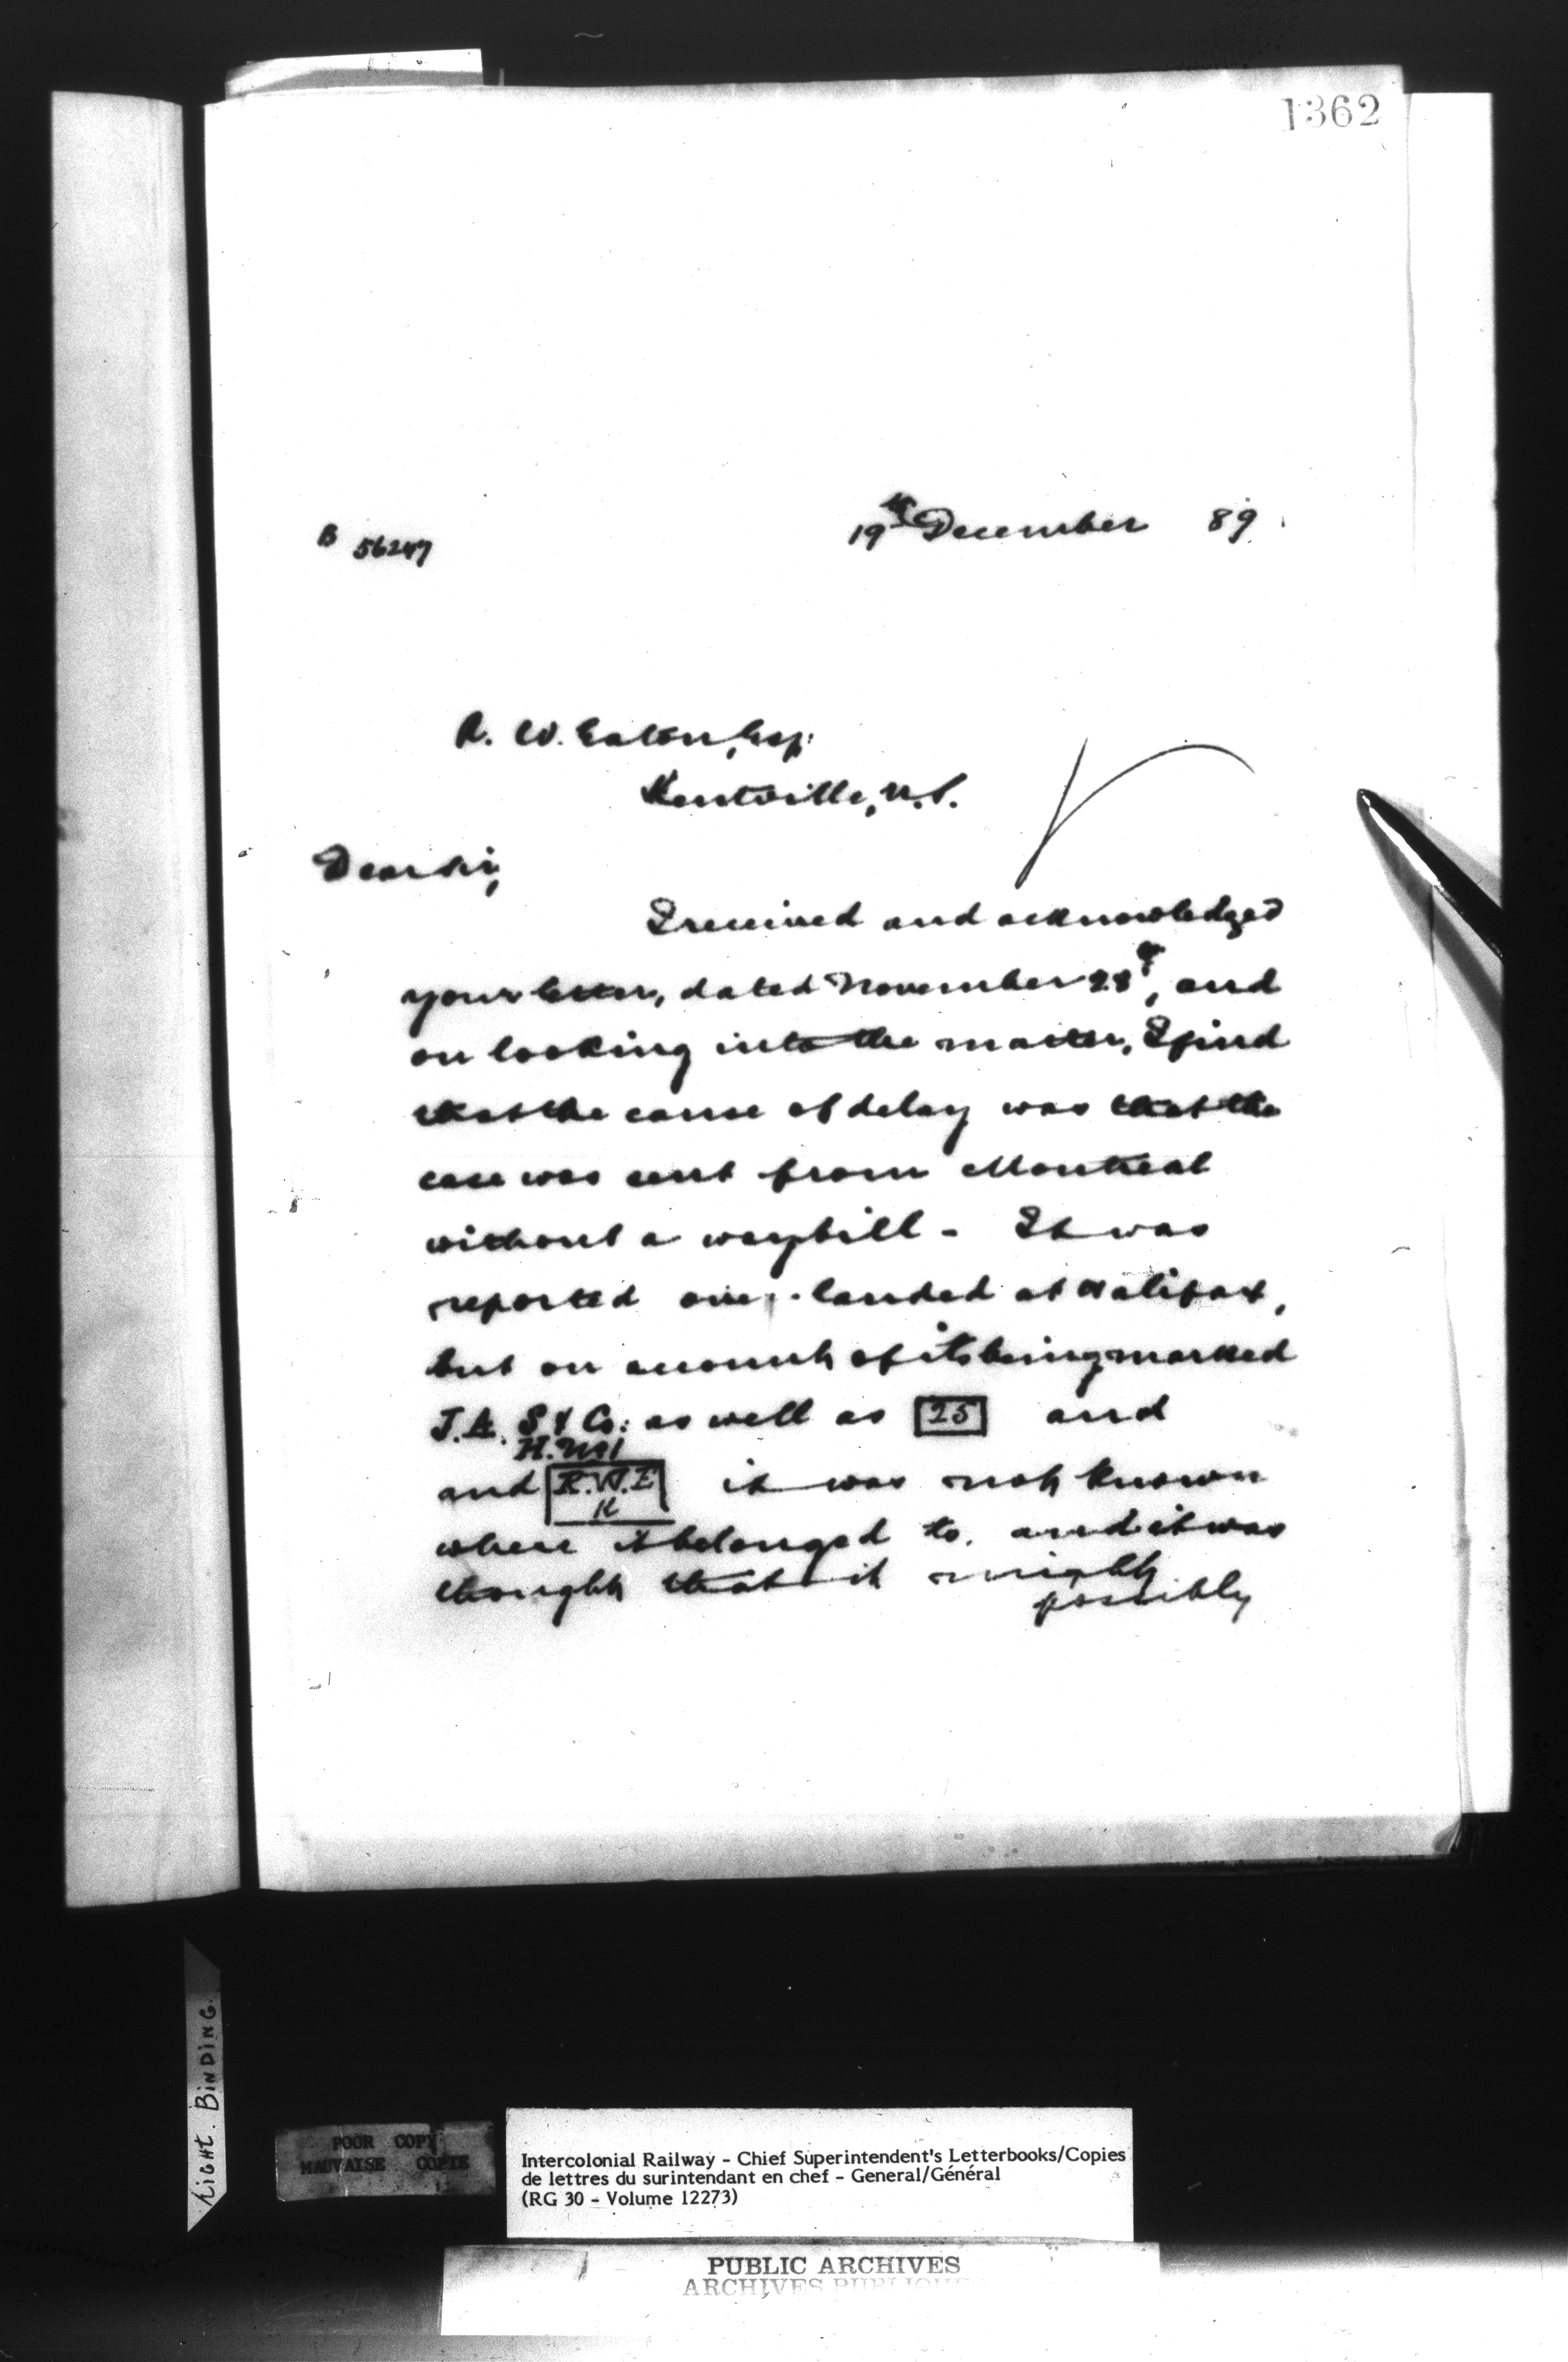 1362
B 56247
19th December 89.
R. W. Eaton, Esq:
Kentville, N.S.
Dear Sir,
I received and acknowledged
your letter, dated November 28th, and
on looking into the matter, I find
that the cause of delay was that the
case was sent from Montreal
without a waybill - It was
reported over-landed at Halifax,
but on account of its being marked
J.A. S & Co: as well as 25 and
H. McI
and R.W.E
K
it was not known
where it belonged to, and it was
thought that it might
possibly
TIGHT. BINDING.
POOR COPY
MAUVAISE COPIE
Intercolonial Railway - Chief Superintendent's Letterbooks/Copies
de lettres du surintendant en chef - General/Général
(RG 30 - Volume 12273)
PUBLIC ARCHIVES
ARCHIVES PUBLIQUES